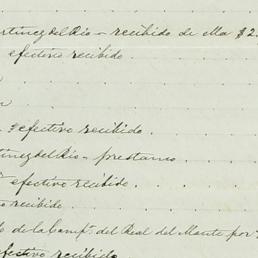 rtinez del Rio – recibido de Ma $2
efectivo recibido
efectivo recibido
tinez del Rio – prestamo
efectivo recibido
recibido
de la Comp.ª del Real del Monte por
efectivo recibido